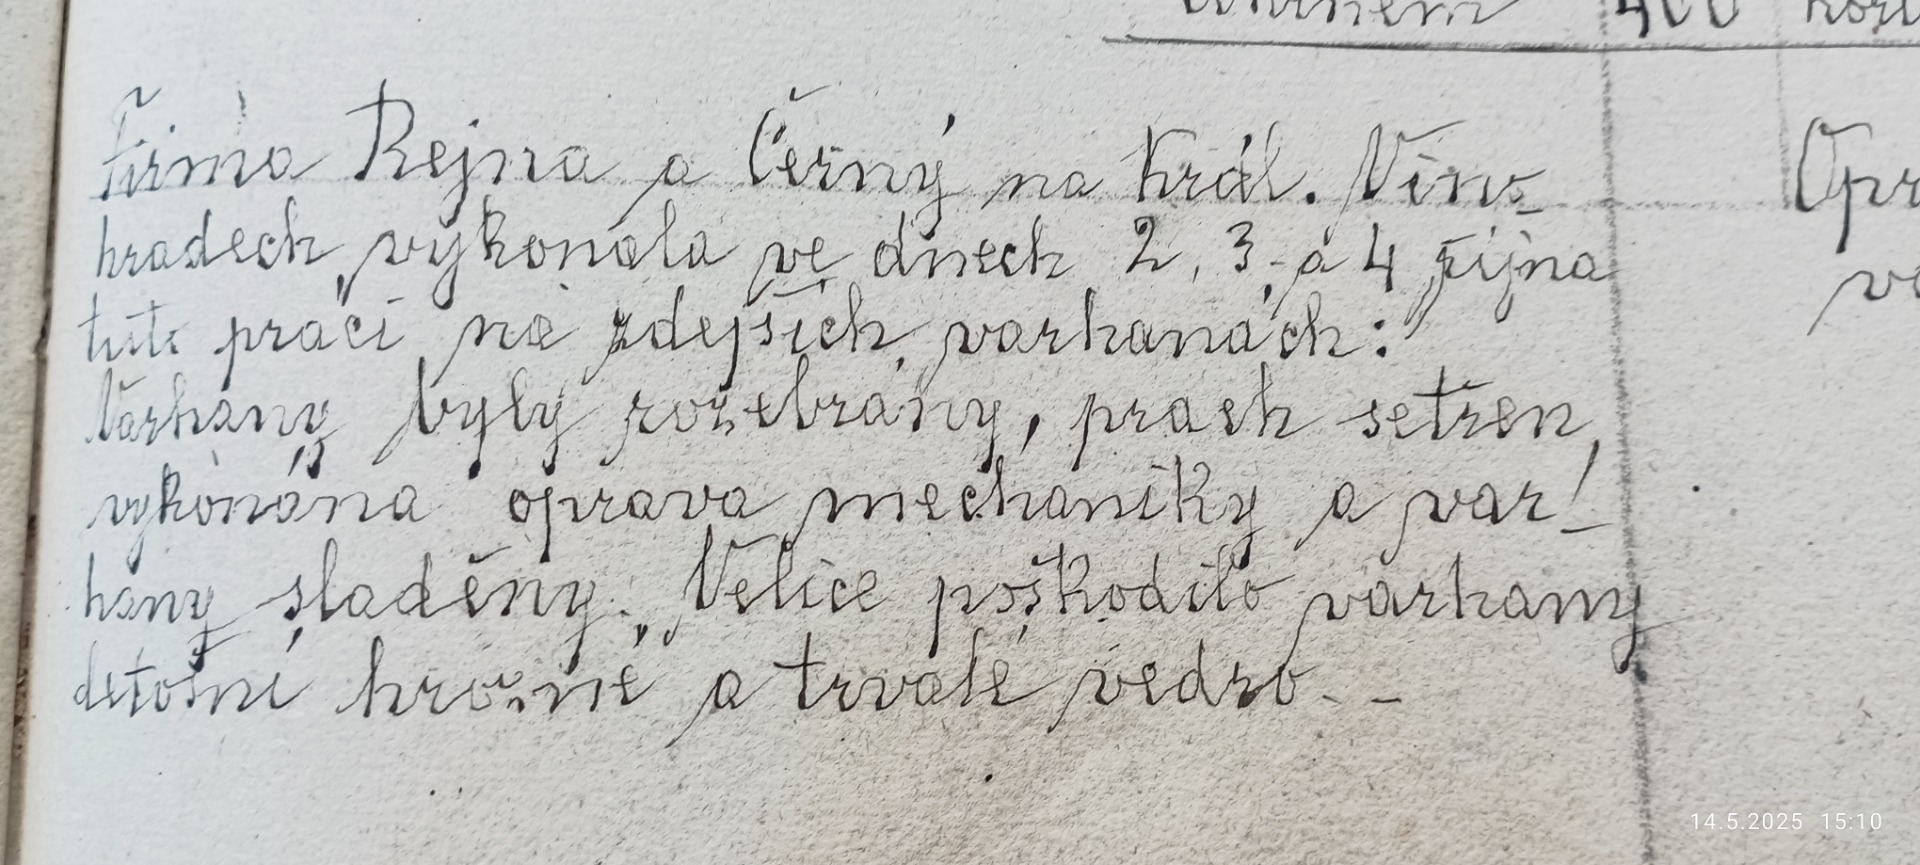 400
Firma Rejna a Černý na Král. Vino-
hradech vykonala ve dnech 2, 3. a 4 října
tuto práci na zdejších varhanách:
Varhany byly rozebrány, prach setřen,
vykonána oprava mechaniky a var-
hany sladěny. Velice poškodilo varhany
letošní hrozné a trvalé vedro. -
14.5.2025 15:10